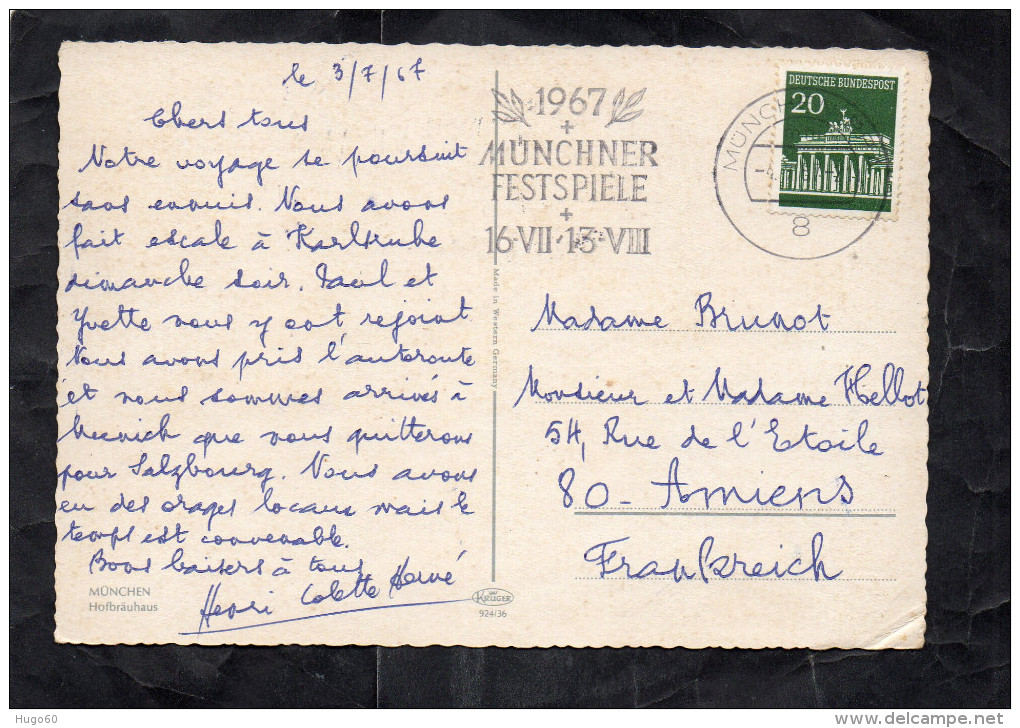 le 3/7/67
Chers tous
Notre voyage se poursuit
sans ennuis. Nous avons
fait escale à Karlsruhe
dimanche soir. Paul et
Yvette nous y ont rejoint
Nous avons pris l'autoroute
et nous sommes arrivés à
Munich que nous quitterons
pour Salzbourg. Nous avons
eu des orages locaux mais le
temps est convenable.
Bons baisers à tous
Henri Colette Hervé
MÜNCHEN
Hofbräuhaus
1967
+
MÜNCHNER
FESTSPIELE
+
16·VII·-13·VIII
MÜNCH
-4.
8
DEUTSCHE BUNDESPOST
20
Made in Western Germany
KRÜGER
924/36
Madame Brunot
Monsieur et Madame Hellot
54, Rue de l'Etoile
80 - Amiens
Frankreich
Hugo60
www.delcampe.net